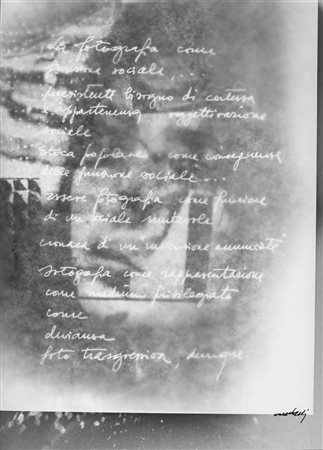 La fotografia come
funzione sociale,...
persistente bisogno di certezza
appartenenza oggettivazione
sociale
etica popolare come conseguenza
della funzione sociale...
essere fotografia come funzione
di un sociale mutevole
cronaca di un'invenzione annunciata
fotografia come rappresentazione
come medium privilegiato
come
devianza
foto trasgressiva, dunque.